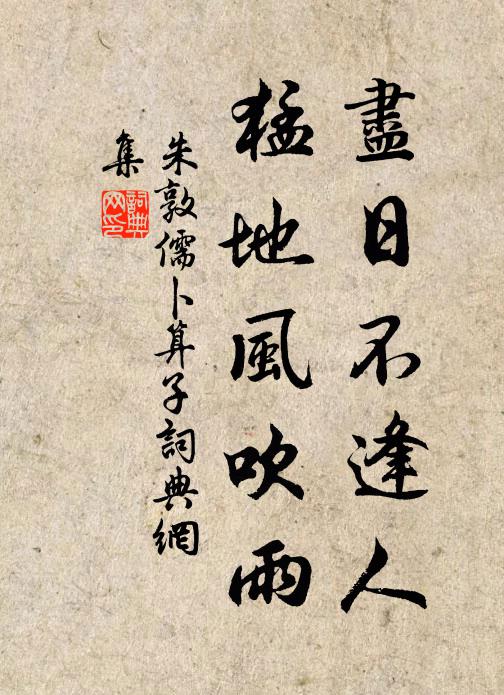 盡日不逢人
猛地風吹雨
朱敦儒卜算子詞典網
集
詞典网印